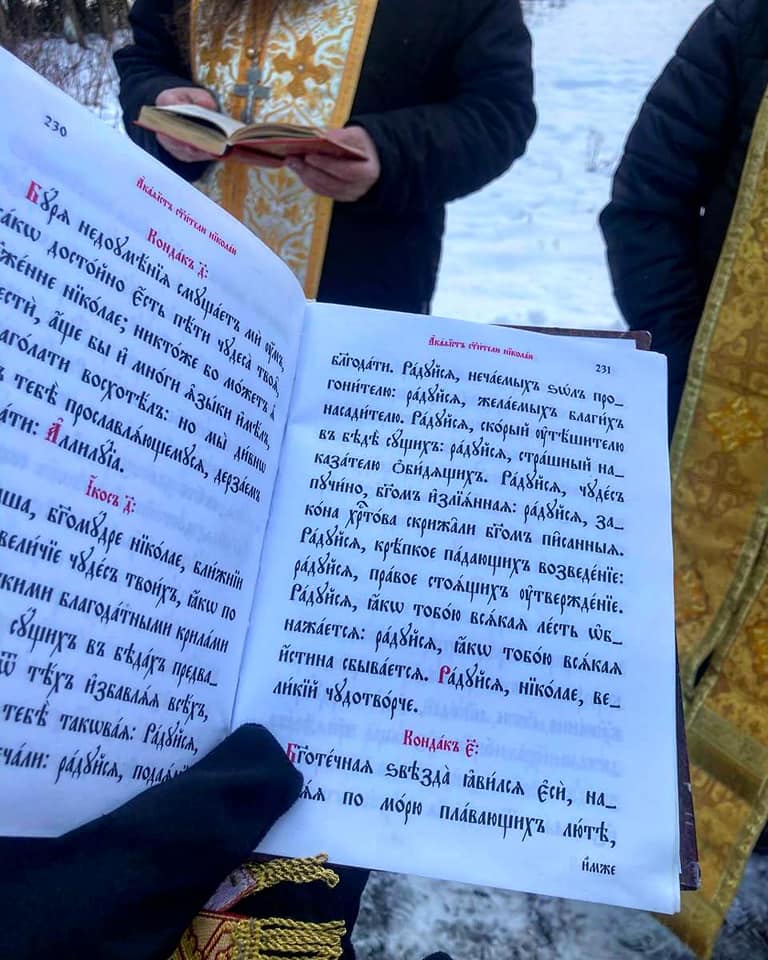 230
А҆ка́ѳїстъ ст҃и́тели нїкола́и
Конда́къ д҃:
Бꙋ́рѧ недоꙋмѣ́нїѧ смꙋща́етъ мѝ ᲂу҆́мъ,
ка́кѡ досто́йно є҆́сть пѣ́ти чꙋдеса̀ твоѧ̑,
нїко́лае: никто́же бо мо́жетъ ѧ҆̀
а҆́ще бы и҆ мно́ги ѧ҆зы́ки и҆мѣ́лъ,
восхотѣ́лъ: но мы̀ ди́внѡ
тебѣ̀ прославлѧ́ющемꙋсѧ, дерза́емъ
А҆ллилꙋ́їа.
І҆́косъ д҃:
бг҃омꙋ́дре нїко́лае, бли́жнїи
вели́чїе чꙋде́съ твои́хъ, ꙗ҆́кѡ по
благода́тными крила́ми
сꙋ́щихъ въ бѣда́хъ предва_
ѿ тѣ́хъ и҆збавлѧ́ѧ всѣ́хъ,
тебѣ̀ такѡва́ѧ: Ра́дꙋйсѧ,
ра́дꙋйсѧ,
А҆ка́ѳїстъ ст҃и́тели нїкола́и
231
бл҃года́ти. Ра́дꙋйсѧ, неча́емыхъ ѕѡ́лъ про_
гони́телю: ра́дꙋйсѧ, жела́емыхъ благи́хъ
насади́телю. Ра́дꙋйсѧ, ско́рый ᲂу҆тѣ́шителю
въ бѣдѣ̀ сꙋ́щихъ: ра́дꙋйсѧ, стра́шный на_
каза́телю ѡ҆би́дѧщихъ. Ра́дꙋйсѧ, чꙋде́съ
пꙋчи́но, бг҃омъ и҆злїѧ́ннаѧ: ра́дꙋйсѧ, за_
ко́на хрⷭ҇то́ва скрижа́ли бг҃омъ пи̑санныѧ.
Ра́дꙋйсѧ, крѣ́пкое па́дающихъ возведе́нїе:
ра́дꙋйсѧ, пра́вое стоѧ́щихъ ᲂу҆твержде́нїе.
Ра́дꙋйсѧ, ꙗ҆́кѡ тобо́ю всѧ́каѧ ле́сть ѡ҆б_
нажа́етсѧ: ра́дꙋйсѧ, ꙗ҆́кѡ тобо́ю всѧ́каѧ
и҆́стина сбыва́етсѧ. Ра́дꙋйсѧ, нїко́лае, ве_
ли́кїй чꙋдотво́рче.
Конда́къ є҃:
Бг҃оте́чнаѧ ѕвѣзда̀ ꙗ҆ви́лсѧ є҆сѝ, на_
по мо́рю пла́вающихъ лю́тѣ,
и҆̀мже